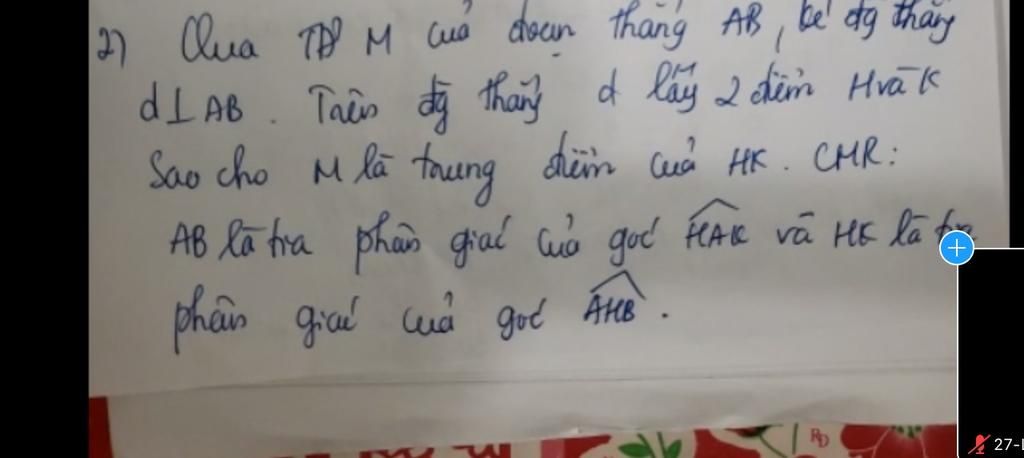 2) Qua TĐ M của đoạn thẳng AB, kẻ đg thẳng
d ⊥ AB. Trên đg thẳng d lấy 2 điểm H và K
Sao cho M là trung điểm của HK. CMR:
AB là tia phân giác của góc HAK và HK là tia
phân giác của góc AHB.
RD
27-